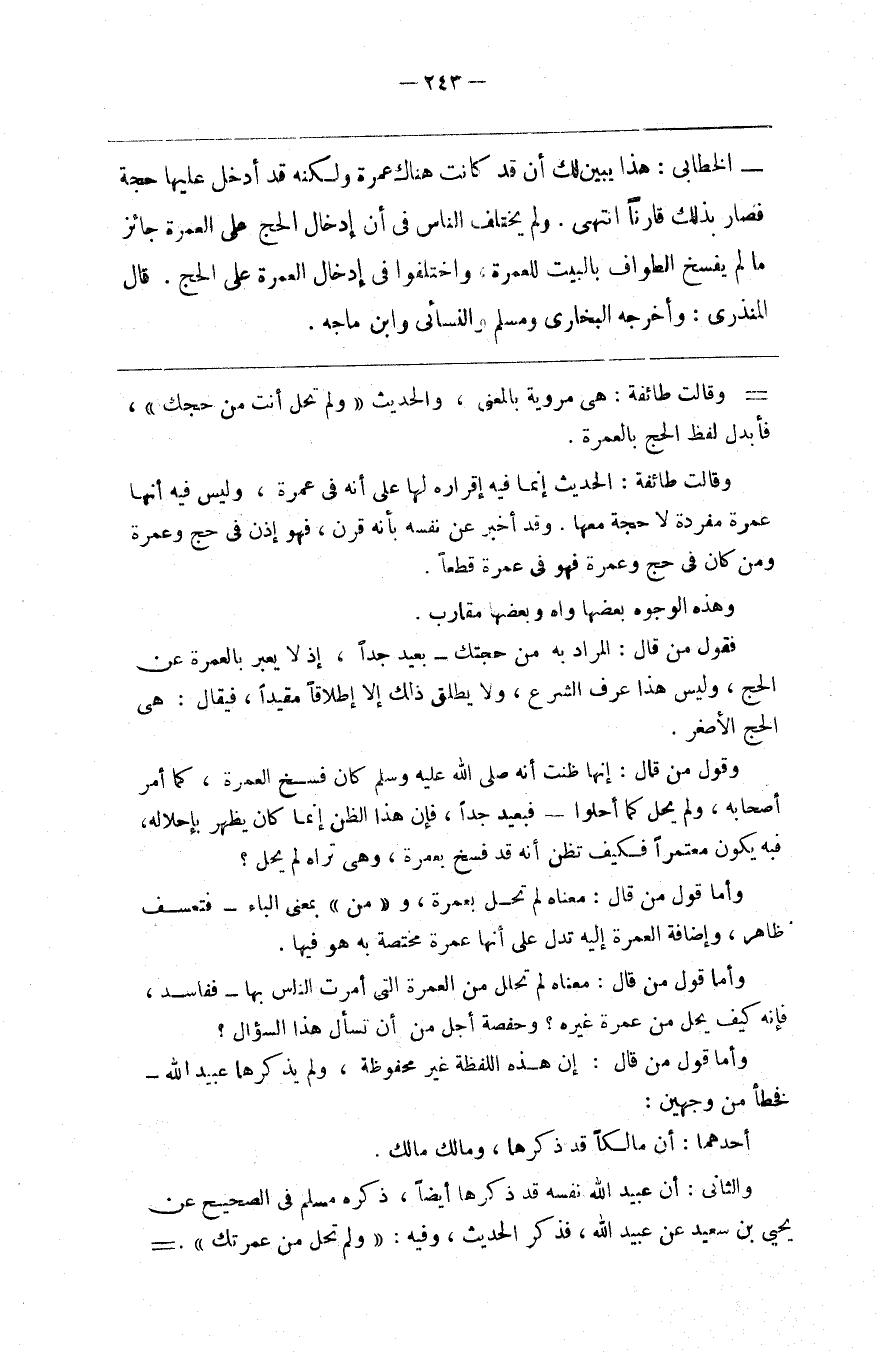 — ٢٤٣ —
— الخطابى : هذا يبين لك أن قد كانت هناك عمرة ولكنه قد أدخل عليها حجة
فصار بذلك قارناً انتهى . ولم يختلف الناس فى أن إدخال الحج على العمرة جائز
ما لم يفسخ الطواف بالبيت للعمرة ، واختلفوا فى إدخال العمرة على الحج . قال
المنذرى : وأخرجه البخارى ومسلم والنسائى وابن ماجه .
= وقالت طائفة : هى مروية بالمعنى ، والحديث « ولم تحل أنت من حجك » ،
فأبدل لفظ الحج بالعمرة .
وقالت طائفة : الحديث إنما فيه إقراره لها على أنه فى عمرة ، وليس فيه أنها
عمرة مفردة لا حجة معها . وقد أخبر عن نفسه بأنه قرن ، فهو إذن فى حج وعمرة
ومن كان فى حج وعمرة فهو فى عمرة قطعاً .
وهذه الوجوه بعضها واه وبعضها مقارب .
فقول من قال : المراد به من حجتك — بعيد جداً ، إذ لا يعبر بالعمرة عن
الحج ، وليس هذا عرف الشرع ، ولا يطلق ذلك إلا إطلاقاً مقيداً ، فيقال : هى
الحج الأصغر .
وقول من قال : إنها ظنت أنه صلى الله عليه وسلم كان فسخ العمرة ، كما أمر
أصحابه ، ولم يحل كما أحلوا — فبعيد جداً ، فإن هذا الظن إنما كان يظهر بإحلاله،
فبه يكون معتمراً فكيف تظن أنه قد فسخ بعمرة ، وهى تراه لم يحل ؟
وأما قول من قال : معناه لم تحل بعمرة ، و « من » بمعنى الباء — فتعسف
ظاهر ، وإضافة العمرة إليه تدل على أنها عمرة مختصة به هو فيها .
وأما قول من قال : معناه لم تحلل من العمرة التى أمرت الناس بها — ففاسد ،
فإنه كيف يحل من عمرة غيره ؟ وحفصة أجل من أن تسأل هذا السؤال ؟
وأما قول من قال : إن هذه اللفظة غير محفوظة ، ولم يذكرها عبيد الله —
فخطأ من وجهين :
أحدهما : أن مالكاً قد ذكرها ، ومالك مالك .
والثانى : أن عبيد الله نفسه قد ذكرها أيضاً ، ذكره مسلم فى الصحيح عن
يحيي بن سعيد عن عبيد الله ، فذكر الحديث ، وفيه : « ولم تحل من عمرتك » . =